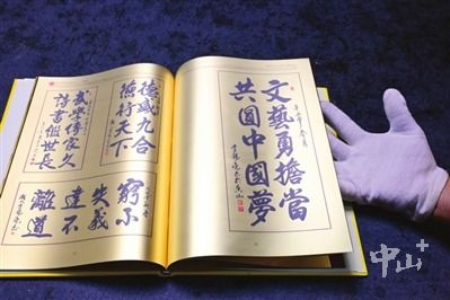 文藝勇擔當
共圓中國夢
德威九合
行天下
學傳家久
詩書繼世長
窮不
失義
達不
離道
中山+